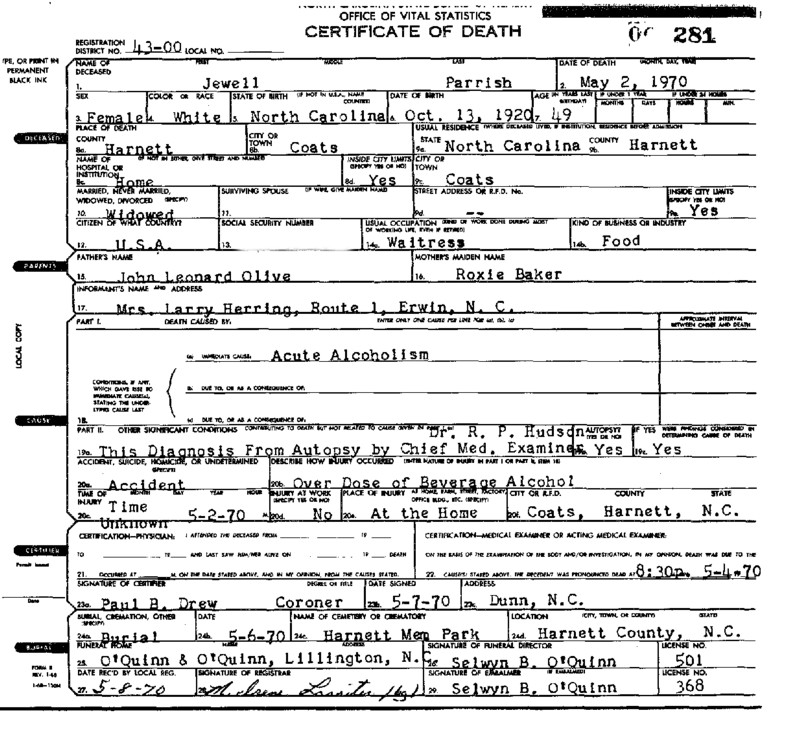 OFFICE OF VITAL STATISTICS
CERTIFICATE OF DEATH
281
REGISTRATION DISTRICT NO. 43-00 LOCAL NO.
TYPE, OR PRINT IN PERMANENT BLACK INK
NAME OF DECEASED FIRST MIDDLE LAST DATE OF DEATH (MONTH, DAY, YEAR)
1. Jewell Parrish 2. May 2, 1970
SEX COLOR OR RACE STATE OF BIRTH (IF NOT IN U.S.A., NAME COUNTRY) DATE OF BIRTH AGE (IN YEARS LAST BIRTHDAY) IF UNDER 1 YEAR IF UNDER 24 HOURS
MONTHS DAYS HOURS MIN.
3. Female 4. White 5. North Carolina 6. Oct. 13, 1920 7. 49
DECEASED
PLACE OF DEATH USUAL RESIDENCE (WHERE DECEASED LIVED, IF INSTITUTION, RESIDENCE BEFORE ADMISSION)
COUNTY CITY OR TOWN STATE COUNTY
8a. Harnett 8b. Coats 9a. North Carolina 9b. Harnett
NAME OF HOSPITAL OR INSTITUTION (IF NOT IN EITHER, GIVE STREET AND NUMBER) INSIDE CITY LIMITS (SPECIFY YES OR NO) CITY OR TOWN
8c. Home 8d. Yes 9c. Coats
MARRIED, NEVER MARRIED, WIDOWED, DIVORCED (SPECIFY) SURVIVING SPOUSE (IF WIFE, GIVE MAIDEN NAME) STREET ADDRESS OR R.F.D. No. INSIDE CITY LIMITS (SPECIFY YES OR NO)
10. Widowed 11. 9d. -- 9e. Yes
CITIZEN OF WHAT COUNTRY? SOCIAL SECURITY NUMBER USUAL OCCUPATION (KIND OF WORK DONE DURING MOST OF WORKING LIFE, EVEN IF RETIRED) KIND OF BUSINESS OR INDUSTRY
12. U.S.A. 13. 14a. Waitress 14b. Food
PARENTS
FATHER'S NAME MOTHER'S MAIDEN NAME
15. John Leonard Olive 16. Roxie Baker
INFORMANT'S NAME AND ADDRESS
17. Mrs. Larry Herring, Route 1, Erwin, N. C.
LOCAL COPY
PART I. DEATH CAUSED BY: ENTER ONLY ONE CAUSE PER LINE FOR (a), (b), (c) APPROXIMATE INTERVAL BETWEEN ONSET AND DEATH
(a) IMMEDIATE CAUSE: Acute Alcoholism
CONDITIONS, IF ANY, WHICH GAVE RISE TO IMMEDIATE CAUSE(a), STATING THE UNDERLYING CAUSE LAST
(b) DUE TO, OR AS A CONSEQUENCE OF:
CAUSE
18. (c) DUE TO, OR AS A CONSEQUENCE OF:
PART II. OTHER SIGNIFICANT CONDITIONS CONTRIBUTING TO DEATH BUT NOT RELATED TO CAUSE GIVEN IN PART Dr. R. P. Hudson AUTOPSY? (YES OR NO) IF YES WERE FINDINGS CONSIDERED IN DETERMINING CAUSE OF DEATH
19a. This Diagnosis From Autopsy by Chief Med. Examiner Yes 19c. Yes
ACCIDENT, SUICIDE, HOMICIDE, OR UNDETERMINED (SPECIFY) DESCRIBE HOW INJURY OCCURRED (ENTER NATURE OF INJURY IN PART I OR PART II, ITEM 18)
20a. Accident 20b. Over Dose of Beverage Alcohol
TIME OF INJURY MONTH DAY YEAR HOUR INJURY AT WORK (SPECIFY YES OR NO) PLACE OF INJURY AT HOME, FARM, STREET, FACTORY, OFFICE BLDG., ETC. (SPECIFY) CITY OR R.F.D. COUNTY STATE
20c. Time Unknown 5-2-70 M. 20d. No 20e. At the Home 20f. Coats, Harnett, N.C.
CERTIFICATION—PHYSICIAN: I ATTENDED THE DECEASED FROM 19 CERTIFICATION—MEDICAL EXAMINER OR ACTING MEDICAL EXAMINER:
CERTIFIER
TO 19 AND LAST SAW HIM/HER ALIVE ON 19 DEATH ON THE BASIS OF THE EXAMINATION OF THE BODY AND/OR INVESTIGATION, IN MY OPINION, DEATH WAS DUE TO THE
21. OCCURRED AT M. ON THE DATE STATED ABOVE, AND IN MY OPINION, FROM THE CAUSES STATED. 22. CAUSE(S) STATED ABOVE. THE DECEDENT WAS PRONOUNCED DEAD AT 8:30p. 5-4-70
Permit Issued
Date
SIGNATURE OF CERTIFIER DEGREE OR TITLE DATE SIGNED ADDRESS
23a. Paul B. Drew Coroner 23b. 5-7-70 23c. Dunn, N.C.
BURIAL, CREMATION, OTHER (SPECIFY) DATE NAME OF CEMETERY OR CREMATORY LOCATION (CITY, TOWN, OR COUNTY) STATE
24a. Burial 24b. 5-6-70 24c. Harnett Mem Park 24d. Harnett County, N.C.
BURIAL
FUNERAL HOME NAME ADDRESS SIGNATURE OF FUNERAL DIRECTOR LICENSE NO.
25. O'Quinn & O'Quinn, Lillington, N.C. Selwyn B. O'Quinn 501
FORM 8 REV. 1-68
DATE REC'D BY LOCAL REG. SIGNATURE OF REGISTRAR SIGNATURE OF EMBALMER (IF EMBALMED) LICENSE NO.
27. 5-8-70 29. Selwyn B. O'Quinn 368